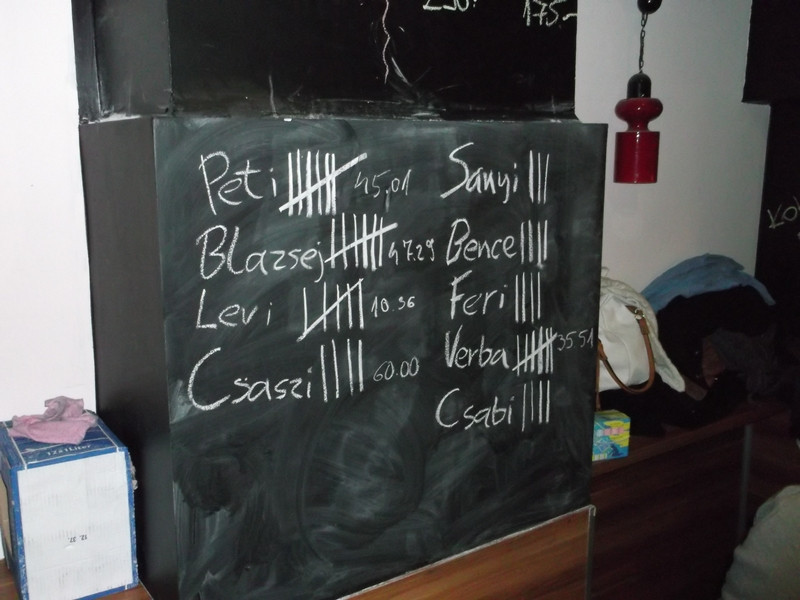 175.-
Peti 45.01
Blazsej 47.29
Levi 10.36
Császi 60.00
Sanyi
Bence
Feri
Verba 35.51
Csabi